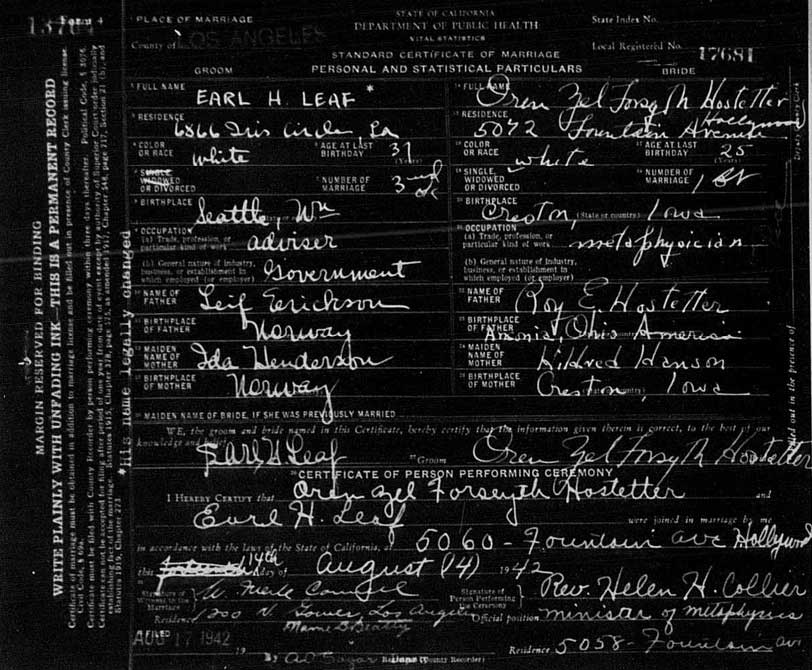 Form 4
PLACE OF MARRIAGE
STATE OF CALIFORNIA
DEPARTMENT OF PUBLIC HEALTH
VITAL STATISTICS
State Index No.
County of LOS ANGELES
Local Registered No. 17681
STANDARD CERTIFICATE OF MARRIAGE
GROOM PERSONAL AND STATISTICAL PARTICULARS BRIDE
FULL NAME EARL H. LEAF * FULL NAME Oren Zel Forsyth Hostetter
RESIDENCE 6866 Iris Circle, La RESIDENCE 5072 Fountain Avenue Hollywood
COLOR OR RACE white AGE AT LAST BIRTHDAY 37 (Years) COLOR OR RACE white AGE AT LAST BIRTHDAY 25 (Years)
SINGLE WIDOWED OR DIVORCED NUMBER OF MARRIAGE 3 SINGLE WIDOWED OR DIVORCED NUMBER OF MARRIAGE 1 st
BIRTHPLACE Seattle, Wn BIRTHPLACE Creston, (State or country) Iowa
OCCUPATION
(a) Trade, profession, or particular kind of work adviser OCCUPATION (a) Trade, profession, or particular kind of work metaphysician
(b) General nature of industry, business, or establishment in which employed (or employer) Government (b) General nature of industry, business, or establishment in which employed (or employer)
NAME OF FATHER Leif Eerickson NAME OF FATHER Roy E. Hostetter
BIRTHPLACE OF FATHER Norway BIRTHPLACE OF FATHER Ansonia, Ohio America
MAIDEN NAME OF MOTHER Ida Henderson MAIDEN NAME OF MOTHER Mildred Hanson
BIRTHPLACE OF MOTHER Norway BIRTHPLACE OF MOTHER Creston, Iowa
MAIDEN NAME OF BRIDE, IF SHE WAS PREVIOUSLY MARRIED
WE, the groom and bride named in this Certificate, hereby certify that the information given therein is correct, to the best of our
knowledge and belief.
Earl H Leaf Groom Oren Zel Forsyth Hostetter
CERTIFICATE OF PERSON PERFORMING CEREMONY
I HEREBY CERTIFY that Oren Zel Forseyth Hostetter and
Earl H. Leaf were joined in marriage by me
in accordance with the laws of the State of California, at 5060 - Fountain ave Hollywood
this 14th day of august (14) 1942
Signature of Witness to the Marriage Signature of Person Performing the Ceremony Rev. Helen H. Collier
Residence Los Angeles Official position minister of metaphysics
Mame D Beatty
FILED AUG 17 1942 Residence 5058 - Fountain ave
19 Deputy (County Recorder)
MARGIN RESERVED FOR BINDING
WRITE PLAINLY WITH UNFADING INK—THIS IS A PERMANENT RECORD
*His name legally changed